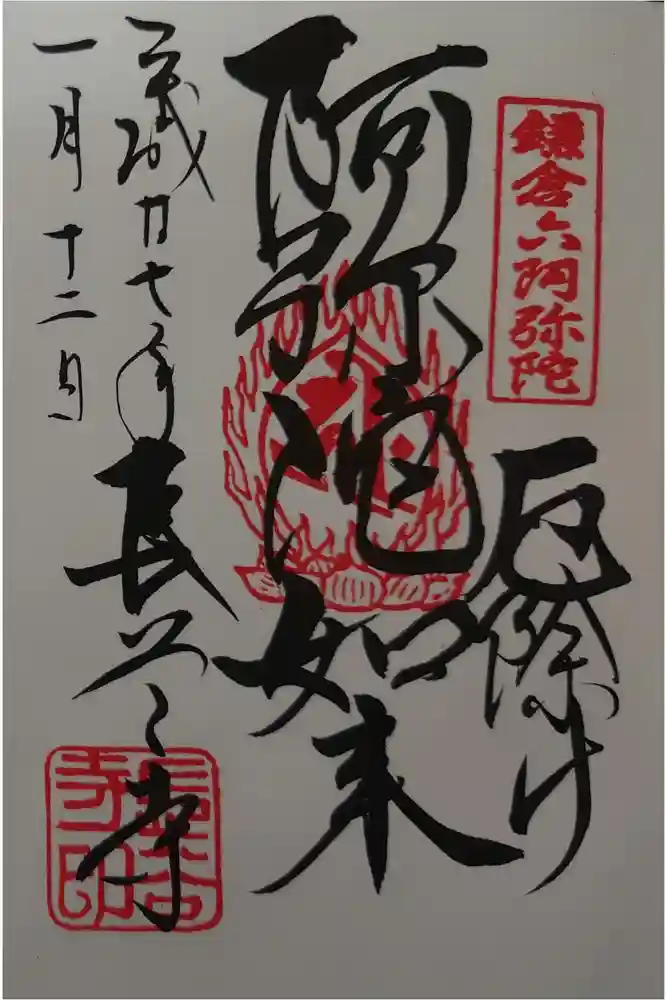 鎌倉六阿弥陀
厄除け
阿弥陀如来
平成廿七年
長谷寺
一月十二日
長谷寺印